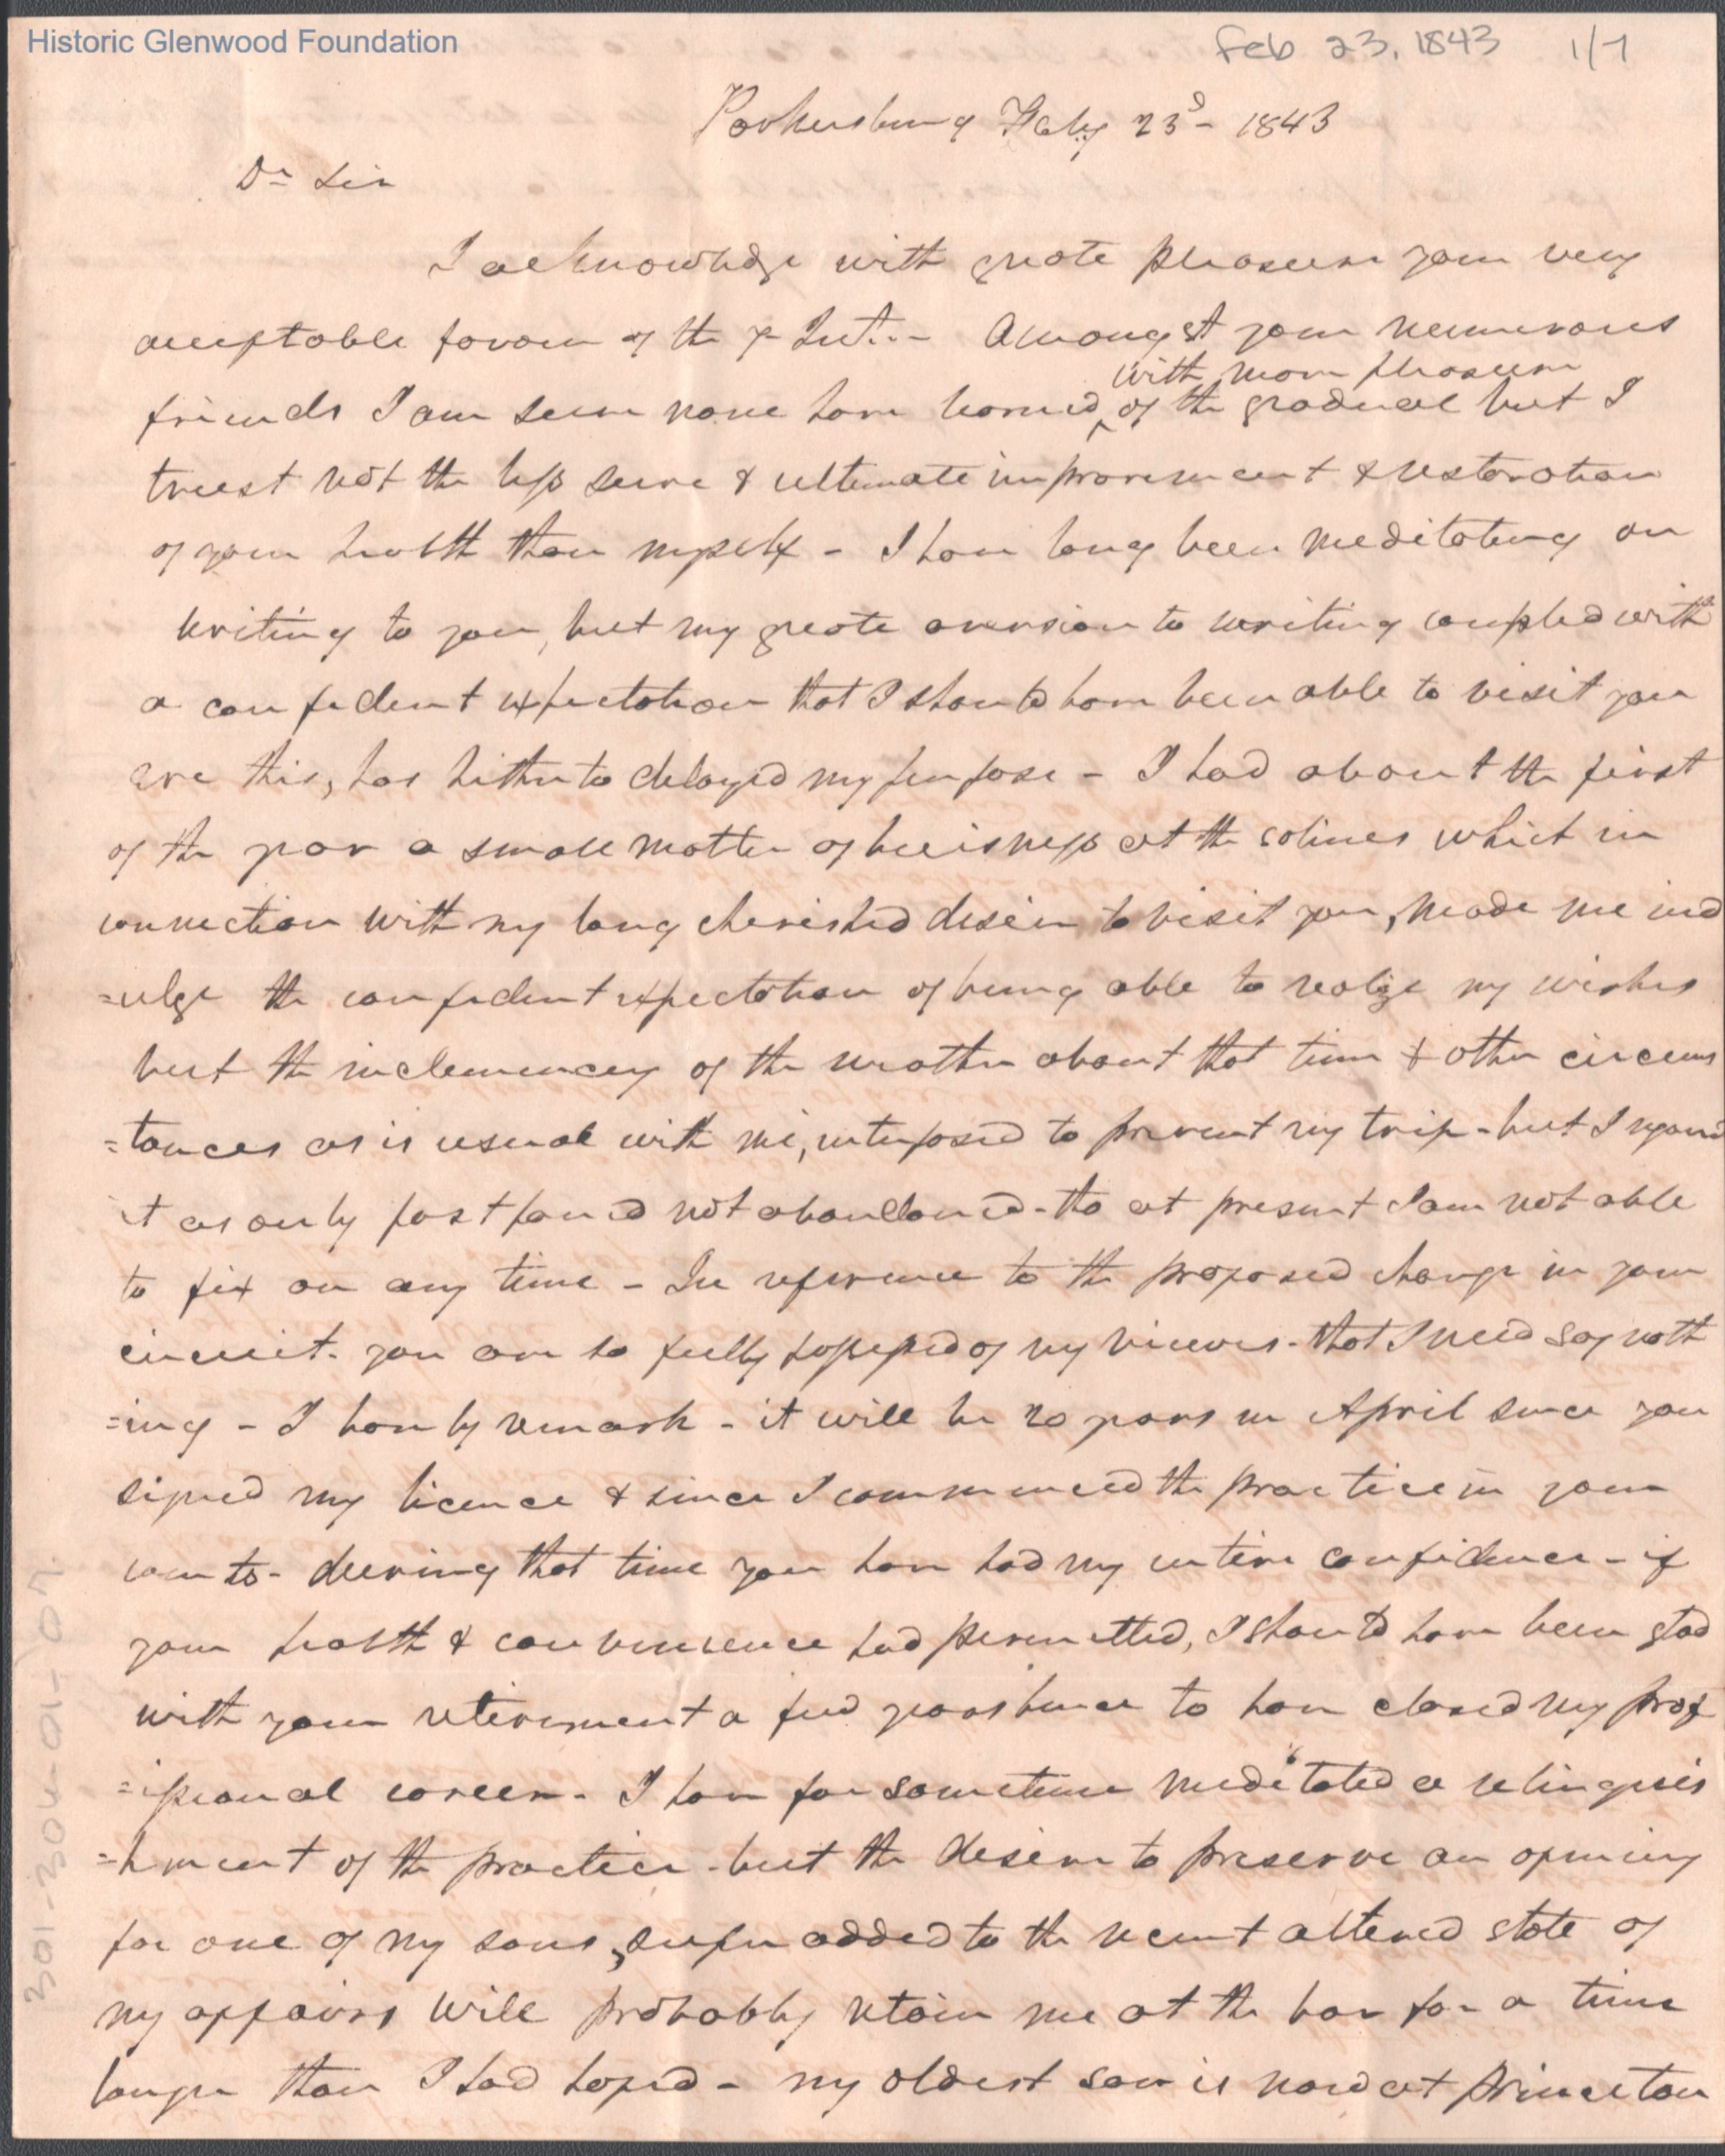 Historic Glenwood Foundation
Feb 23, 1843 1/7
Parkersburg Feby 23d - 1843
Dr Sir
I acknowledge with greate pleasure your very
acceptable favour of the Inst. - Amongst your numerous
with more pleasure
friends I am sure none have learned ^ of the gradual but I
trust not the less sure & ultimate improvement & restoration
of your health than myself - I have long been meditating on
writing to you, but my greate aversion to writing coupled with
a confident expectation that I should have been able to visit you
ere this, has hitherto delayed my purpose - I had about the first
of the year a small matter of buisness at the salines which in
connection with my long cherished desire to visit you, made me ind
=ulge the confident expectation of being able to realize my wishes
but the inclemencey of the weather about that time & other circums
=tances as is usual with me, interposed to prevent my trip - but I regard
it as only postponed not abandoned - tho at present I am not able
to fix on any time - In reference to the proposed change in your
circuit. you are so fully possessed of my views - that I need say noth
=ing - I barely remark - it will be 20 years in April since you
signed my licence & since I commenced the practice in your
courts - during that time you have had my entire confidence - if
your health & convenience had permitted, I should have been glad
with your retirement a few years hence to have closed my prof
=essional career. I have for sometime meditated a relinquis
=hment of the practice - but the desire to preserve an opening
for one of my sons, super added to the recent altered state of
my affairs will probably retain me at the bar for a time
longer than I had hoped - my oldest son is now at Princeton
301-304-01-07